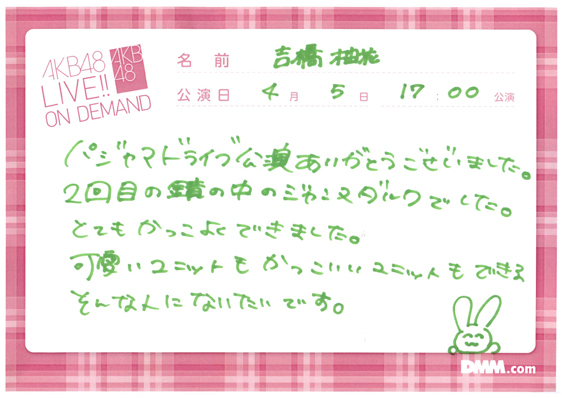 AKB48
LIVE!!
ON DEMAND
AKB
48
名前 吉橋柚花
公演日 4月5日 17:00 公演
パジャマドライブ公演ありがとうございました。
2回目の鏡の中のジャンヌダルクでした。
とてもかっこよくできました。
可愛いユニットもかっこいいユニットもできる
そんな人になりたいです。
DMM.com